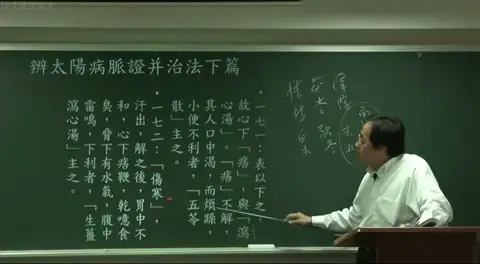 辨太陽病脈證并治法下篇
一七一：表以下之，
故心下「痞」，與「瀉
心湯」。「痞」不解，
其人口中渴，而煩躁，
小便不利者，「五苓
散」主之。
一七二：「傷寒」，
汗出，解之後，胃中不
和，心下痞鞭，乾噫食
臭，脅下有水氣，腹中
雷鳴，下利者，「生薑
瀉心湯」主之。